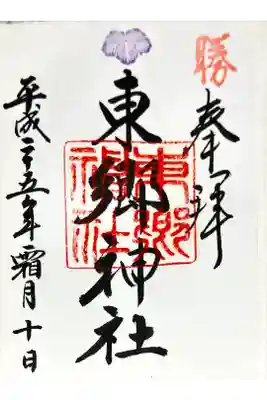 勝
奉拝
東郷神社
東郷神社
平成二十五年霜月十日